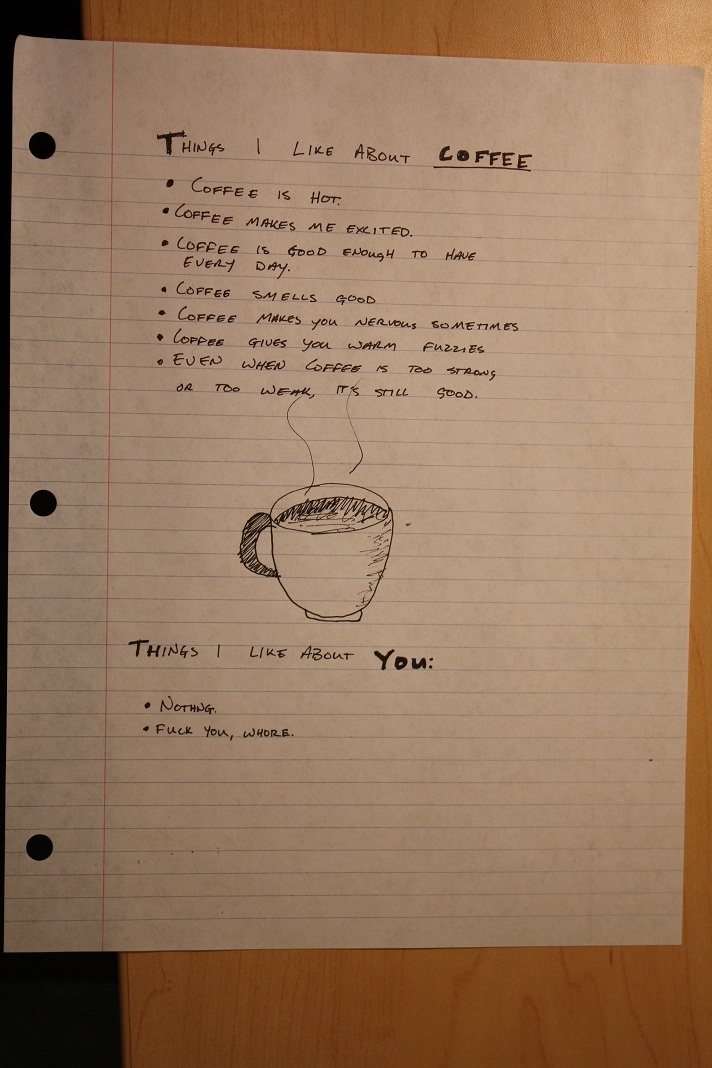 THINGS I LIKE ABOUT COFFEE
• COFFEE IS HOT.
• COFFEE MAKES ME EXCITED.
• COFFEE IS GOOD ENOUGH TO HAVE
EVERY DAY.
• COFFEE SMELLS GOOD
• COFFEE MAKES YOU NERVOUS SOMETIMES
• COFFEE GIVES YOU WARM FUZZIES
• EVEN WHEN COFFEE IS TOO STRONG
OR TOO WEAK, IT'S STILL GOOD.
THINGS I LIKE ABOUT YOU:
• NOTHNG.
• FUCK YOU, WHORE.